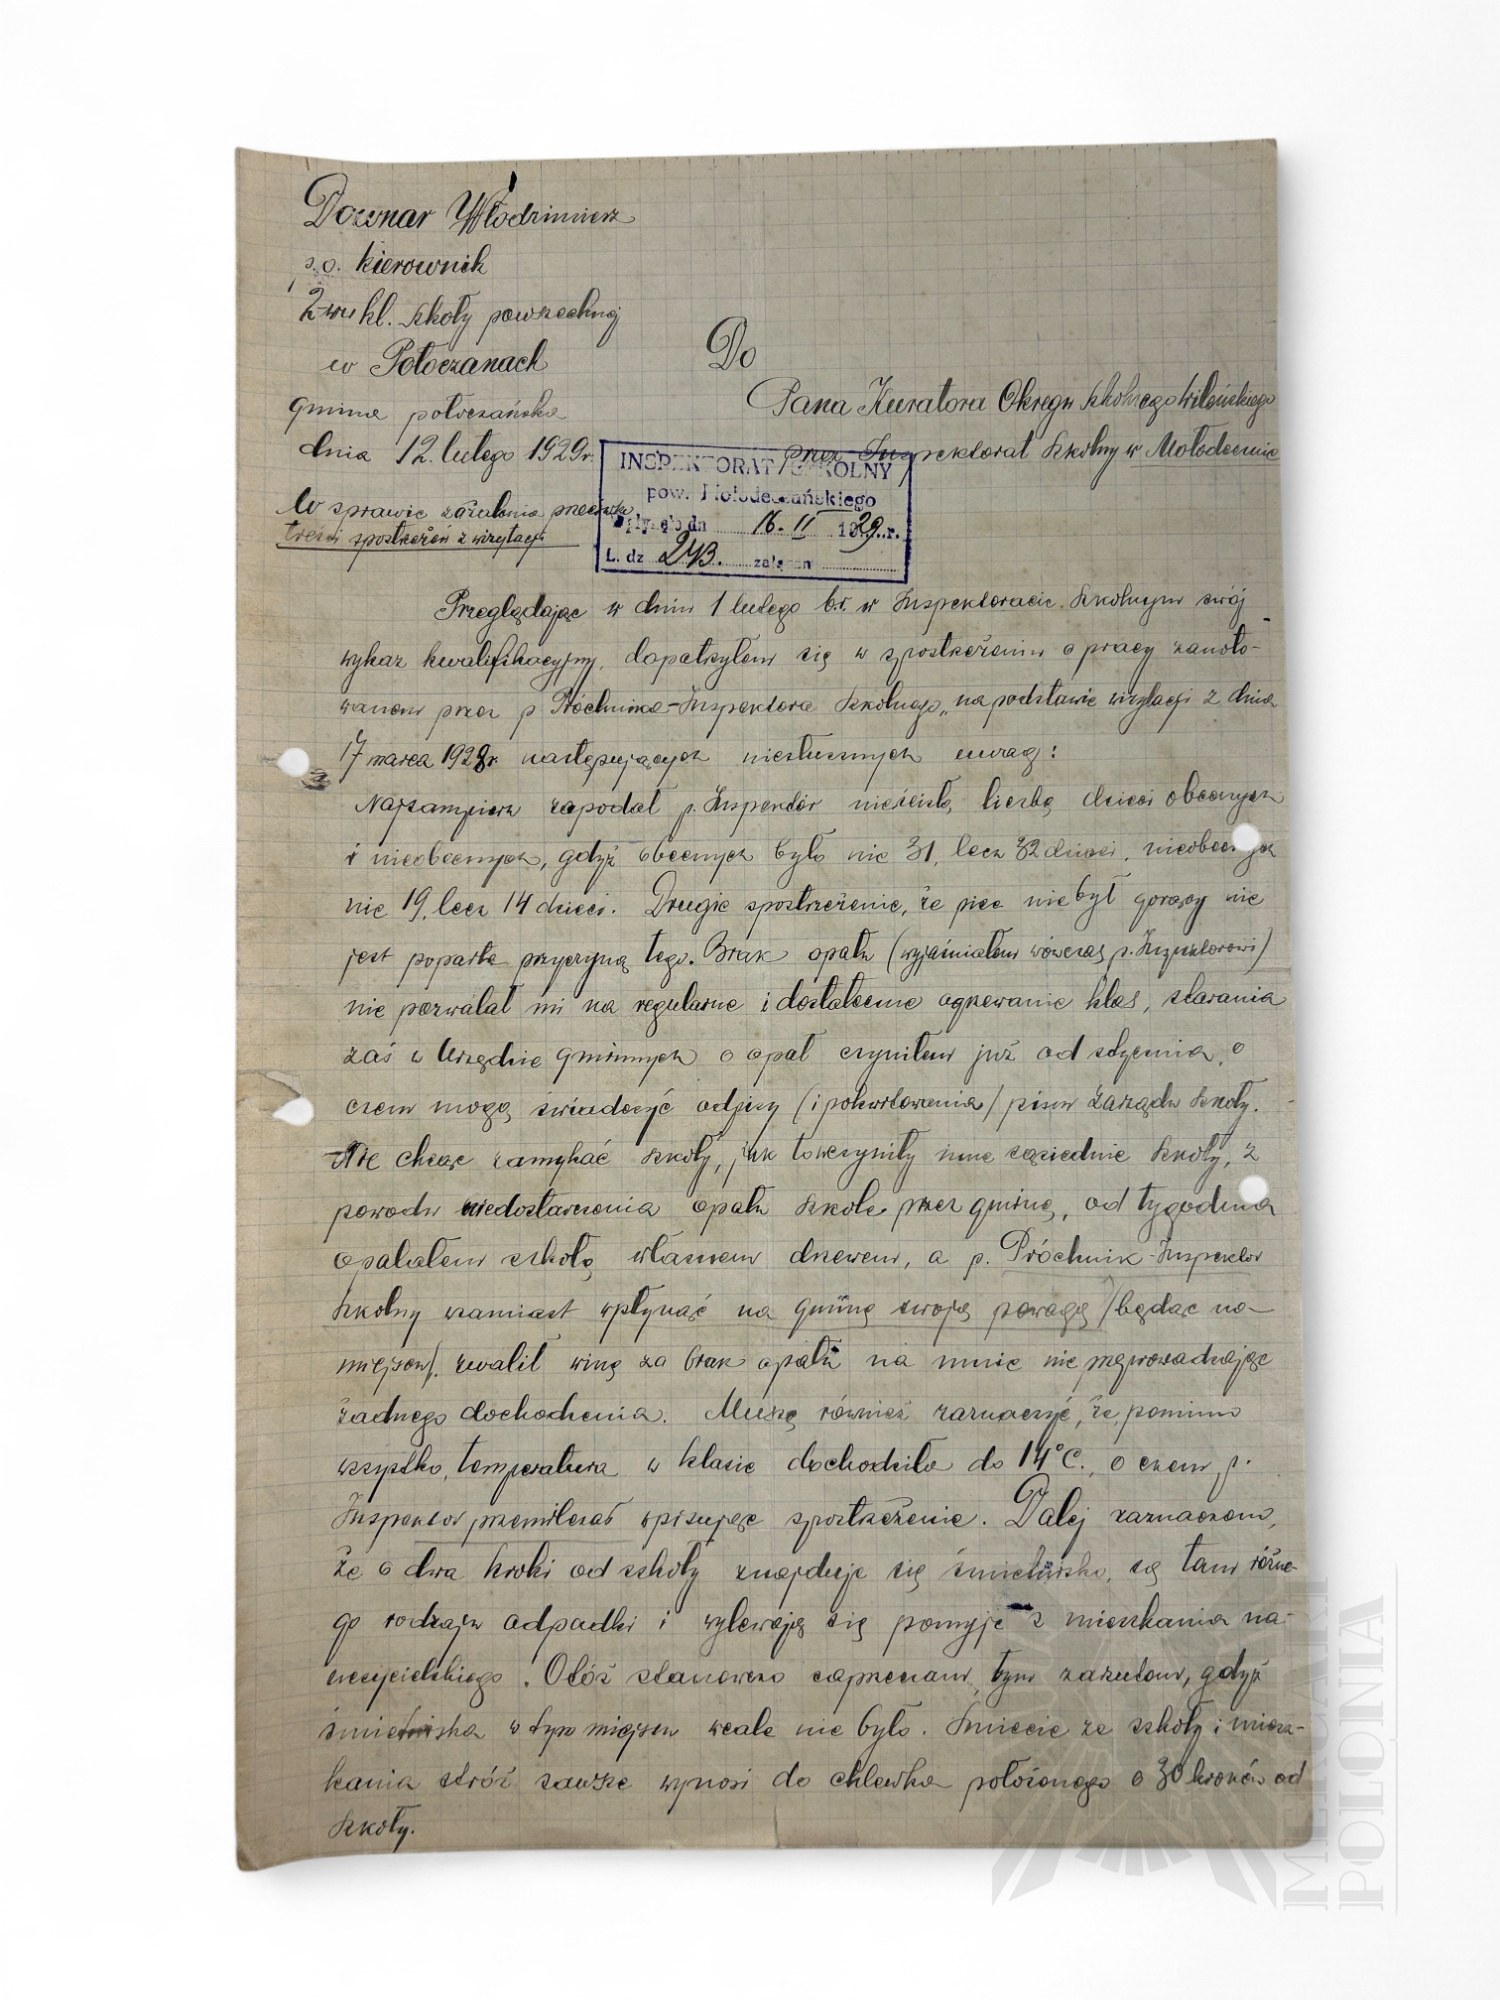 Downar Włodzimierz
p.o. kierownik
2-wu kl. szkoły powszechnej
w Połoczanach
gmina połoczańska
dnia 12. lutego 1929 r.
Do
Pana Kuratora Okręgu Szkolnego Wileńskiego
przez Inspektorat Szkolny w Mołodecznie
INSPEKTORAT SZKOLNY
pow. Mołodeczańskiego
Wpłynęło dn 16. II 1929. r.
L. dz 243. załączn
W sprawie zażalenia przeciwko
treści spostrzeżeń z wizytacji
Przeglądając w dniu 1 lutego b.r. w Inspektoracie Szkolnym swój
wykaz kwalifikacyjny, dopatrzyłem się w spostrzeżeniu o pracy zanoto-
wanem przez p Próchnika-Inspektora Szkolnego, na podstawie wizytacji z dnia
17 marca 1928 r. następujących niesłusznych uwag:
Najsampierw zapodał p. Inspektor nieściśle, liczbę dzieci obecnych
i nieobecnych, gdyż obecnych było nie 31, lecz 32 dzieci, nieobecnych
nie 19, lecz 14 dzieci. Drugie spostrzeżenie, że piec nie był gorący nie
jest poparte przyczyną tego. Brak opału (wyjaśniałem wówczas p. Inspektorowi)
nie pozwalał mi na regularne i dostateczne ogrzewanie klas, starania
zaś w Urzędzie gminnych o opał czyniłem już od stycznia, o
czem mogą świadczyć odpisy (i pokwitowania) pism Zarządu Szkoły.
Nie chcąc zamykać szkoły, jak to uczyniły inne sąsiednie szkoły, z
powodu niedostarczenia opału szkole przez gminę, od tygodnia
opalałem szkołę własnem drzewem, a p. Próchnik-Inspektor
Szkolny zamiast wpłynąć na gminę swoją powagą (będąc na
miejscu), zwalił winę za brak opału na mnie nie przeprowadzając
żadnego dochodzenia. Muszę również zaznaczyć, że, pomimo
wszystko, temperatura w klasie dochodziła do 14°C., o czem p.
Inspektor przemilczał wpisując spostrzeżenie. Dalej zaznaczono,
że o dwa kroki od szkoły znajduje się śmietnisko, są tam różne-
go rodzaju odpadki i wylewają się pomyje z mieszkania na-
uczycielskiego. Otóż stanowczo zaprzeczam, tym zarzutom, gdyż
śmietniska w tym miejscu wcale nie było. Śmiecie ze szkoły i miesz-
kania stróż zawsze wynosi do chlewka położonego o 30 kroków od
szkoły.
MEDALIKI
POLONIA